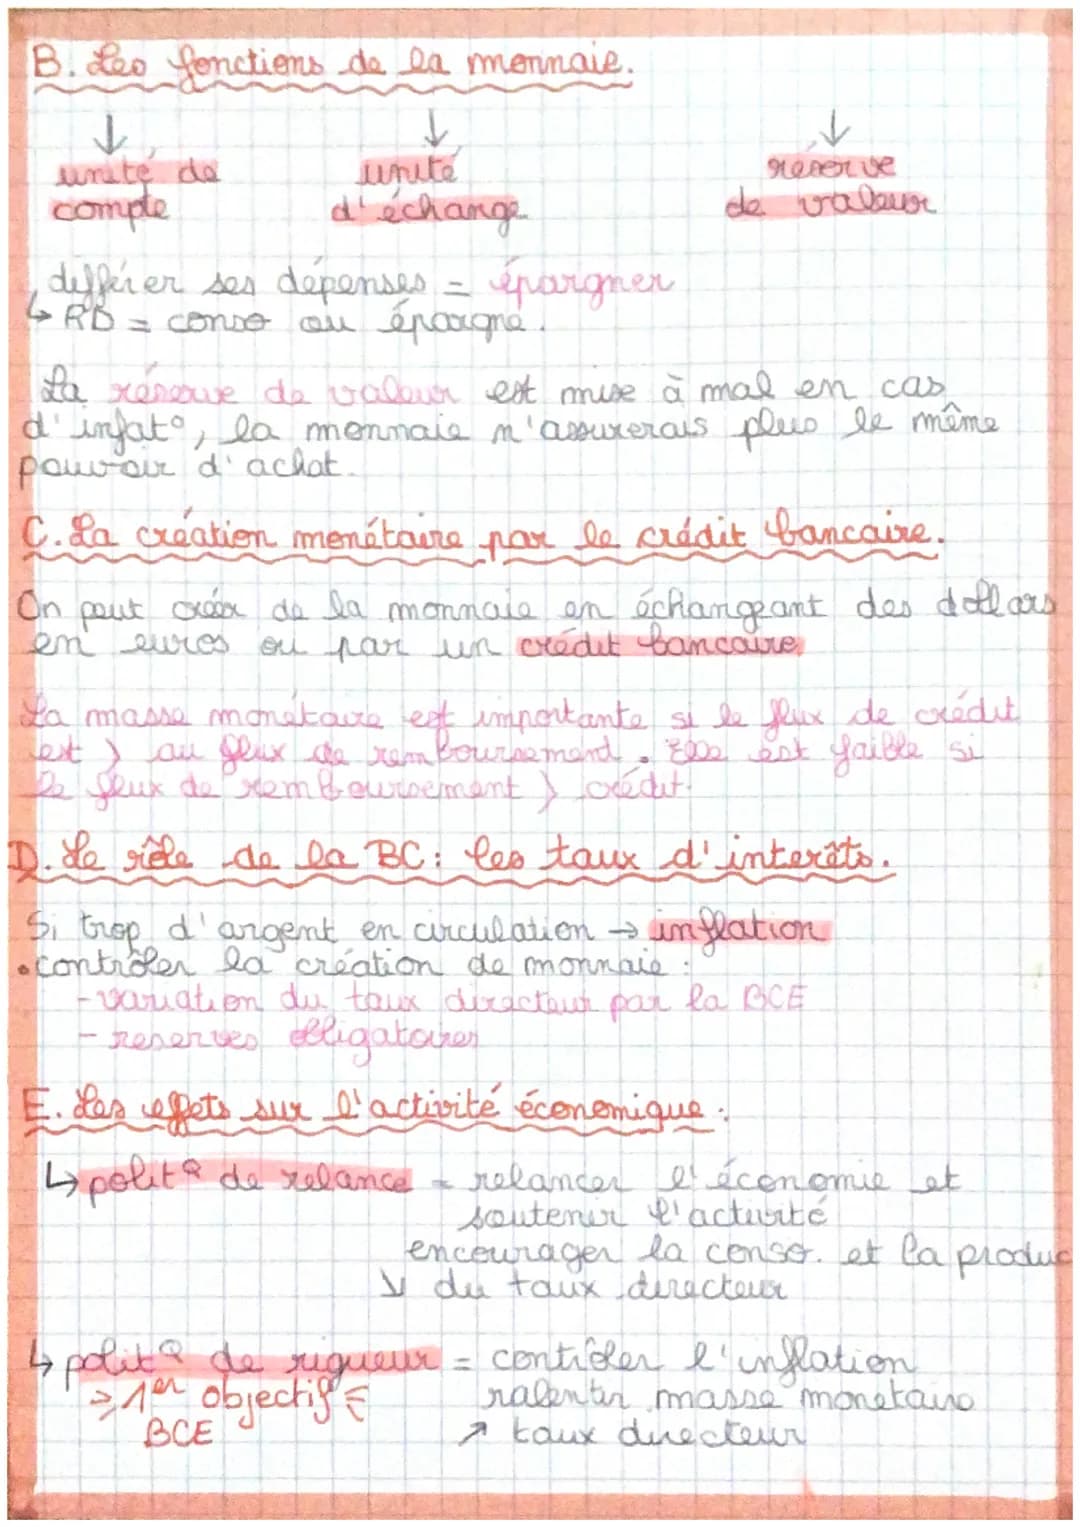 B. Les fonctions de la monnaie.
↓ ↓ ↓
unité de unité réserve
compte d'échange de valeur
différer ses dépenses = épargner
↳ RD = conso ou épargne.
La réserve de valeur est mise à mal en cas
d'infat°, la monnaie n'assurerais plus le même
pouvoir d'achat.
C. La création monétaire par le crédit bancaire.
On peut créer de la monnaie en échangeant des dollars
en euros ou par un crédit bancaire.
La masse monétaire est importante si le flux de crédit
est > au flux de remboursement. Elle est faible si
le flux de remboursement > crédit.
D. Le rôle de la BC : les taux d'interêts.
Si trop d'argent en circulation → inflation
• contrôler la création de monnaie :
- variation du taux directeur par la BCE
- reserves obligatoires
E. Les effets sur l'activité économique :
↳ polit^Q de relance = relancer l'économie et
soutenir l'activité
encourager la conso. et la produc
↘ du taux directeur
↳ polit^Q de rigueur = contrôler l'inflation
⇒ 1er objectif ⇐ ralentir masse monetaire
BCE ↗ taux directeur